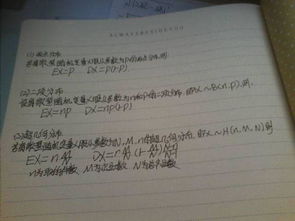 ALWAYS
(1) 两点分布
若离散型随机变量X服从参数为p的两点分布,则
EX=p DX=p(1-p).
(2) 二项分布
设离散型随机变量X服从参数为n和p的二项分布,即X~B(n,p),则
EX=np DX=np(1-p)
(3) 超几何分布
若离散型随机变量X服从参数为N,M,n的超几何分布,即X~H(n,M,N)则
EX=n M/N DX=n M/N (1-M/N) N-n/N-1
n为 M为 N为